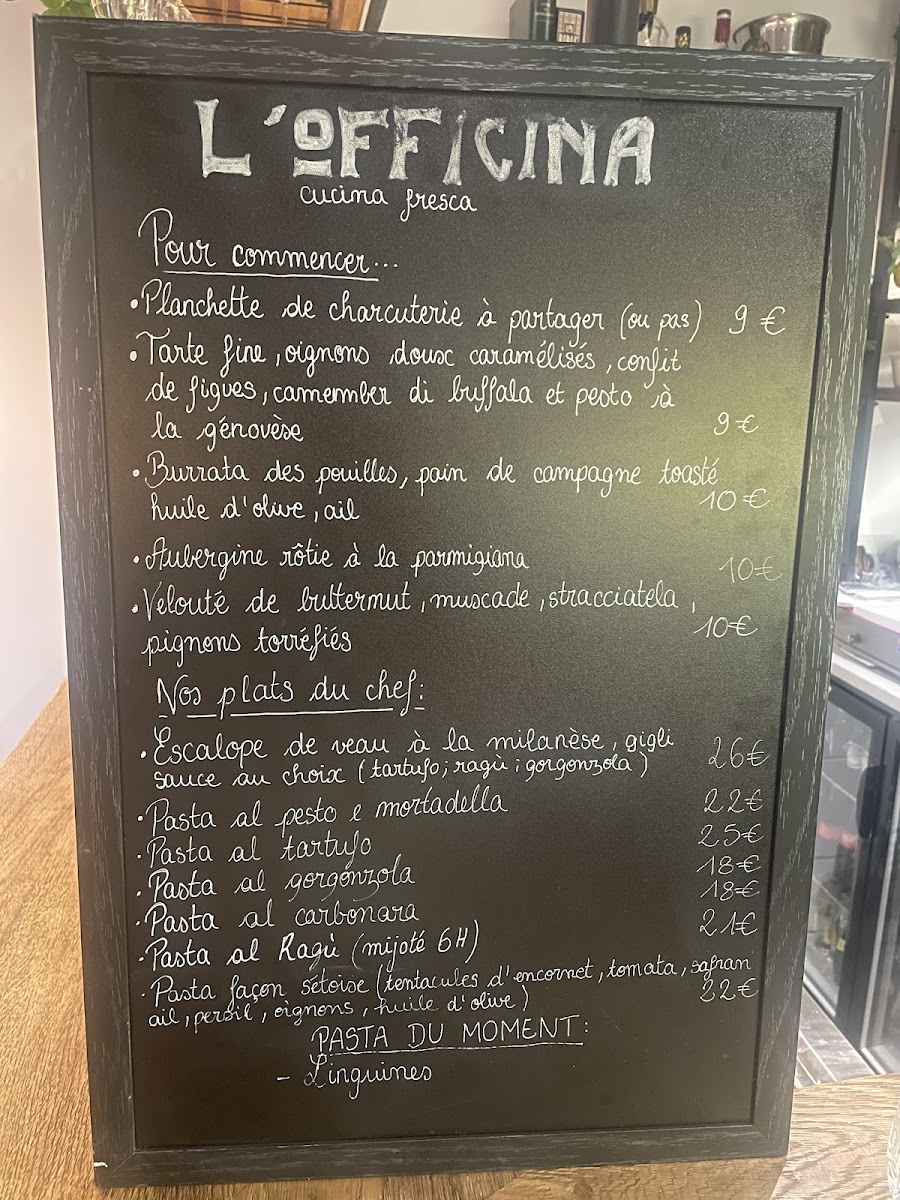 L'OFFICINA
cucina fresca
Pour commencer...
• Planchette de charcuterie à partager (ou pas) 9 €
• Tarte fine, oignons doux caramélisés, confit
de figues, camember di buffala et pesto à
la génovèse 9€
• Burrata des pouilles, pain de campagne toasté
huile d'olive, ail 10€
• Aubergine rôtie à la parmigiana 10€
• Velouté de butternut, muscade, stracciatela,
pignons torréfiés 10€
Nos plats du chef:
• Escalope de veau à la milanèse, gigli
sauce au choix (tartufo; ragù; gorgonzola) 26€
• Pasta al pesto e mortadella 22€
• Pasta al tartufo 25€
• Pasta al gorgonzola 18€
• Pasta al carbonara 18€
• Pasta al Ragù (mijoté 6H) 21€
• Pasta façon sétoise (tentacules d'encornet, tomata, safran
ail, persil, oignons, huile d'olive) 22€
PASTA DU MOMENT:
- Linguines